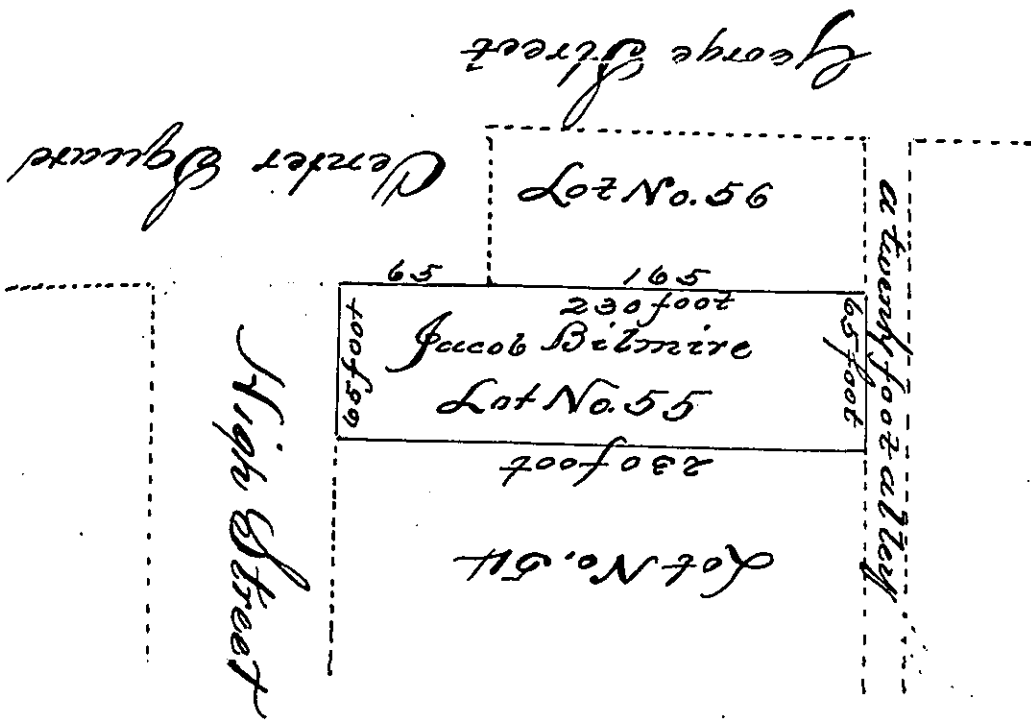 George Street
Center Square
Lot No. 56
a twenty foot alley
65
165
230 foot
65 foot
Jacob Bilmire
65 foot
Lot No. 55
High Street
230 foot
Lot No. 54